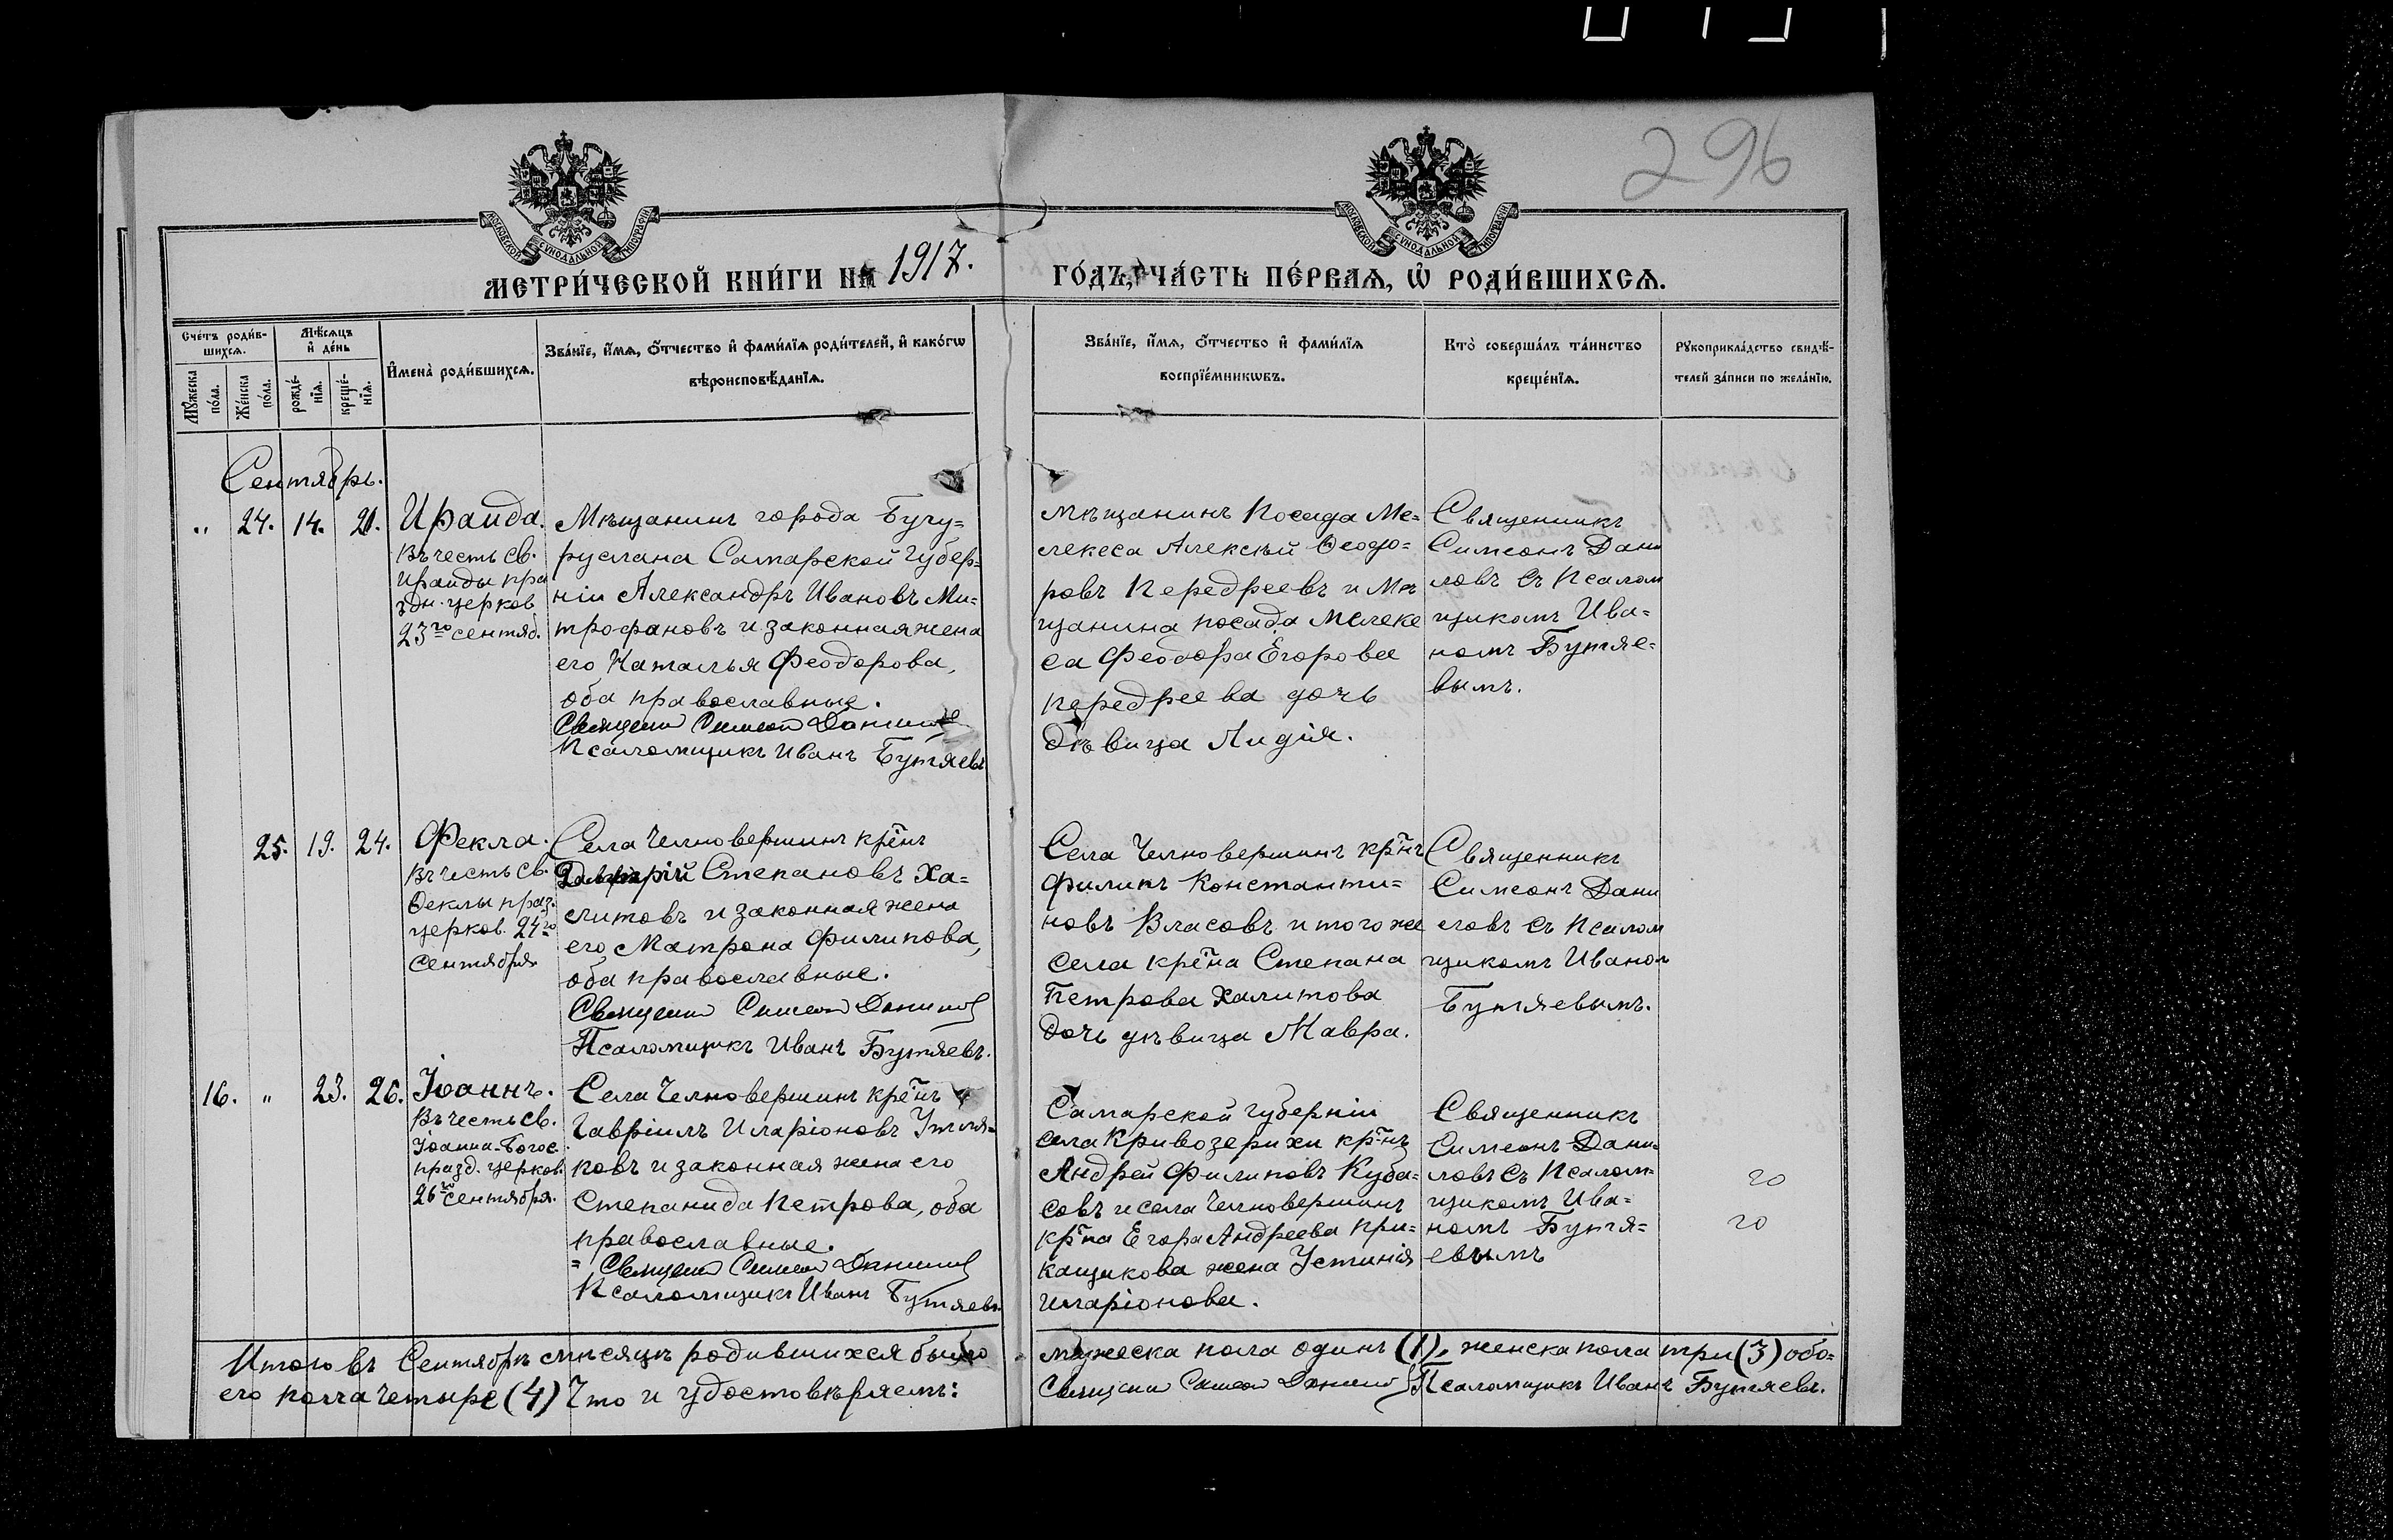 296
МОСКОВСКОЙ СѴНОДАЛЬНОЙ ТИПОГРАФІИ
МОСКОВСКОЙ СѴНОДАЛЬНОЙ ТИПОГРАФІИ
МЕТРИ́ЧЕСКОЙ КНИ́ГИ НА 1917. ГО́ДЪ, ЧА́СТЬ ПЕ́РВАѦ, Ѡ҆ РОДИ́ВШИХСѦ.
Сче́тъ роди́в-
шихсѧ.
Мꙋ́жеска
по́ла.
Же́нска
по́ла.
Мѣ́сѧцъ
и҆ де́нь
рожде́-
нїѧ.
креще́-
нїѧ.
И҆мена̀ роди́вшихсѧ.
Зва́нїе, и҆́мѧ, ѻ҆́тчество и҆ фами́лїѧ роди́телей, и҆ како́гѡ
вѣроисповѣ́данїѧ.
Зва́нїе, и҆́мѧ, ѻ҆́тчество и҆ фами́лїѧ
воспрїе́мникѡвъ.
Кто̀ соверша́лъ та́инство
креще́нїѧ.
Рꙋкоприкла́дство свидѣ́-
телей за́писи по жела́нїю.
Сентябрь.
„ 24. 14. 21.
Ираида.
Въ честь св.
Ираиды пра
здн. церков
23го сентяб.
Мѣщанинъ города Бугу=
руслана Самарской Губер=
ніи Александръ Ивановъ Ми=
трофановъ и законная жена
его Наталья Феодорова,
оба православные.
Священ Симеон Данилов
Псаломщикъ Иванъ Бутяевъ
Мѣщанинъ Посада Ме=
лекеса Алексѣй Ѳеодо=
ровъ Передреевъ и Мѣ
щанина посада Мелеке
са Феодора Егорова
передреева дочь
дѣвица Лидія.
Священникъ
Симеонъ Дани
ловъ съ Псалом
щикомъ Ива=
номъ Бутяе=
вымъ.
25. 19. 24.
Фекла.
Въ честь св.
Ѳеклы праз.
церков. 24го
сентября
Села Челновершинъ кр̃нъ
Степановъ Ха=
литовъ и законная жена
его Матрона Филипова,
оба православные.
Священ Симеон Данилов
Псаломщикъ Иванъ Бутяевъ.
Села Челновершинъ кр̃нъ
Филипъ Константи=
новъ Власовъ и того же
села кр̃на Степана
Петрова Халитова
дочь дѣвица Мавра.
Священникъ
Симеонъ Дани
ловъ съ Псалом
щикомъ Иваном
Бутяевымъ.
16. „ 23. 26.
Іоаннъ.
Въ честь св.
Іоанна-Богос.
празд. церков.
26го сентября.
Села Челновершинъ кр̃нъ
Гавріилъ Иларіоновъ Утля=
ковъ и законная жена его
Степанида Петрова, оба
православные.
= Священ Симеон Данилов
Псаломщикъ Иванъ Бутяевъ.
Самарской губерніи
села Кривозерихи кр̃нъ
Андрей Филиповъ Куба=
совъ и села Челновершинъ
кр̃на Егора Андреева При=
кащикова жена Устинія
Иларіонова.
Священникъ
Симеонъ Дани=
ловъ съ Псалом=
щикомъ Ива=
номъ Бутя=
евымъ
20
20
Итого въ Сентябрѣ мѣсяцѣ родившихся было мужеска пола одинъ (1), женска пола три (3) обо=
его пола четыре (4) Что и удостовѣряемъ: Священ Симеон Данилов Псаломщикъ Иванъ Бутяевъ.